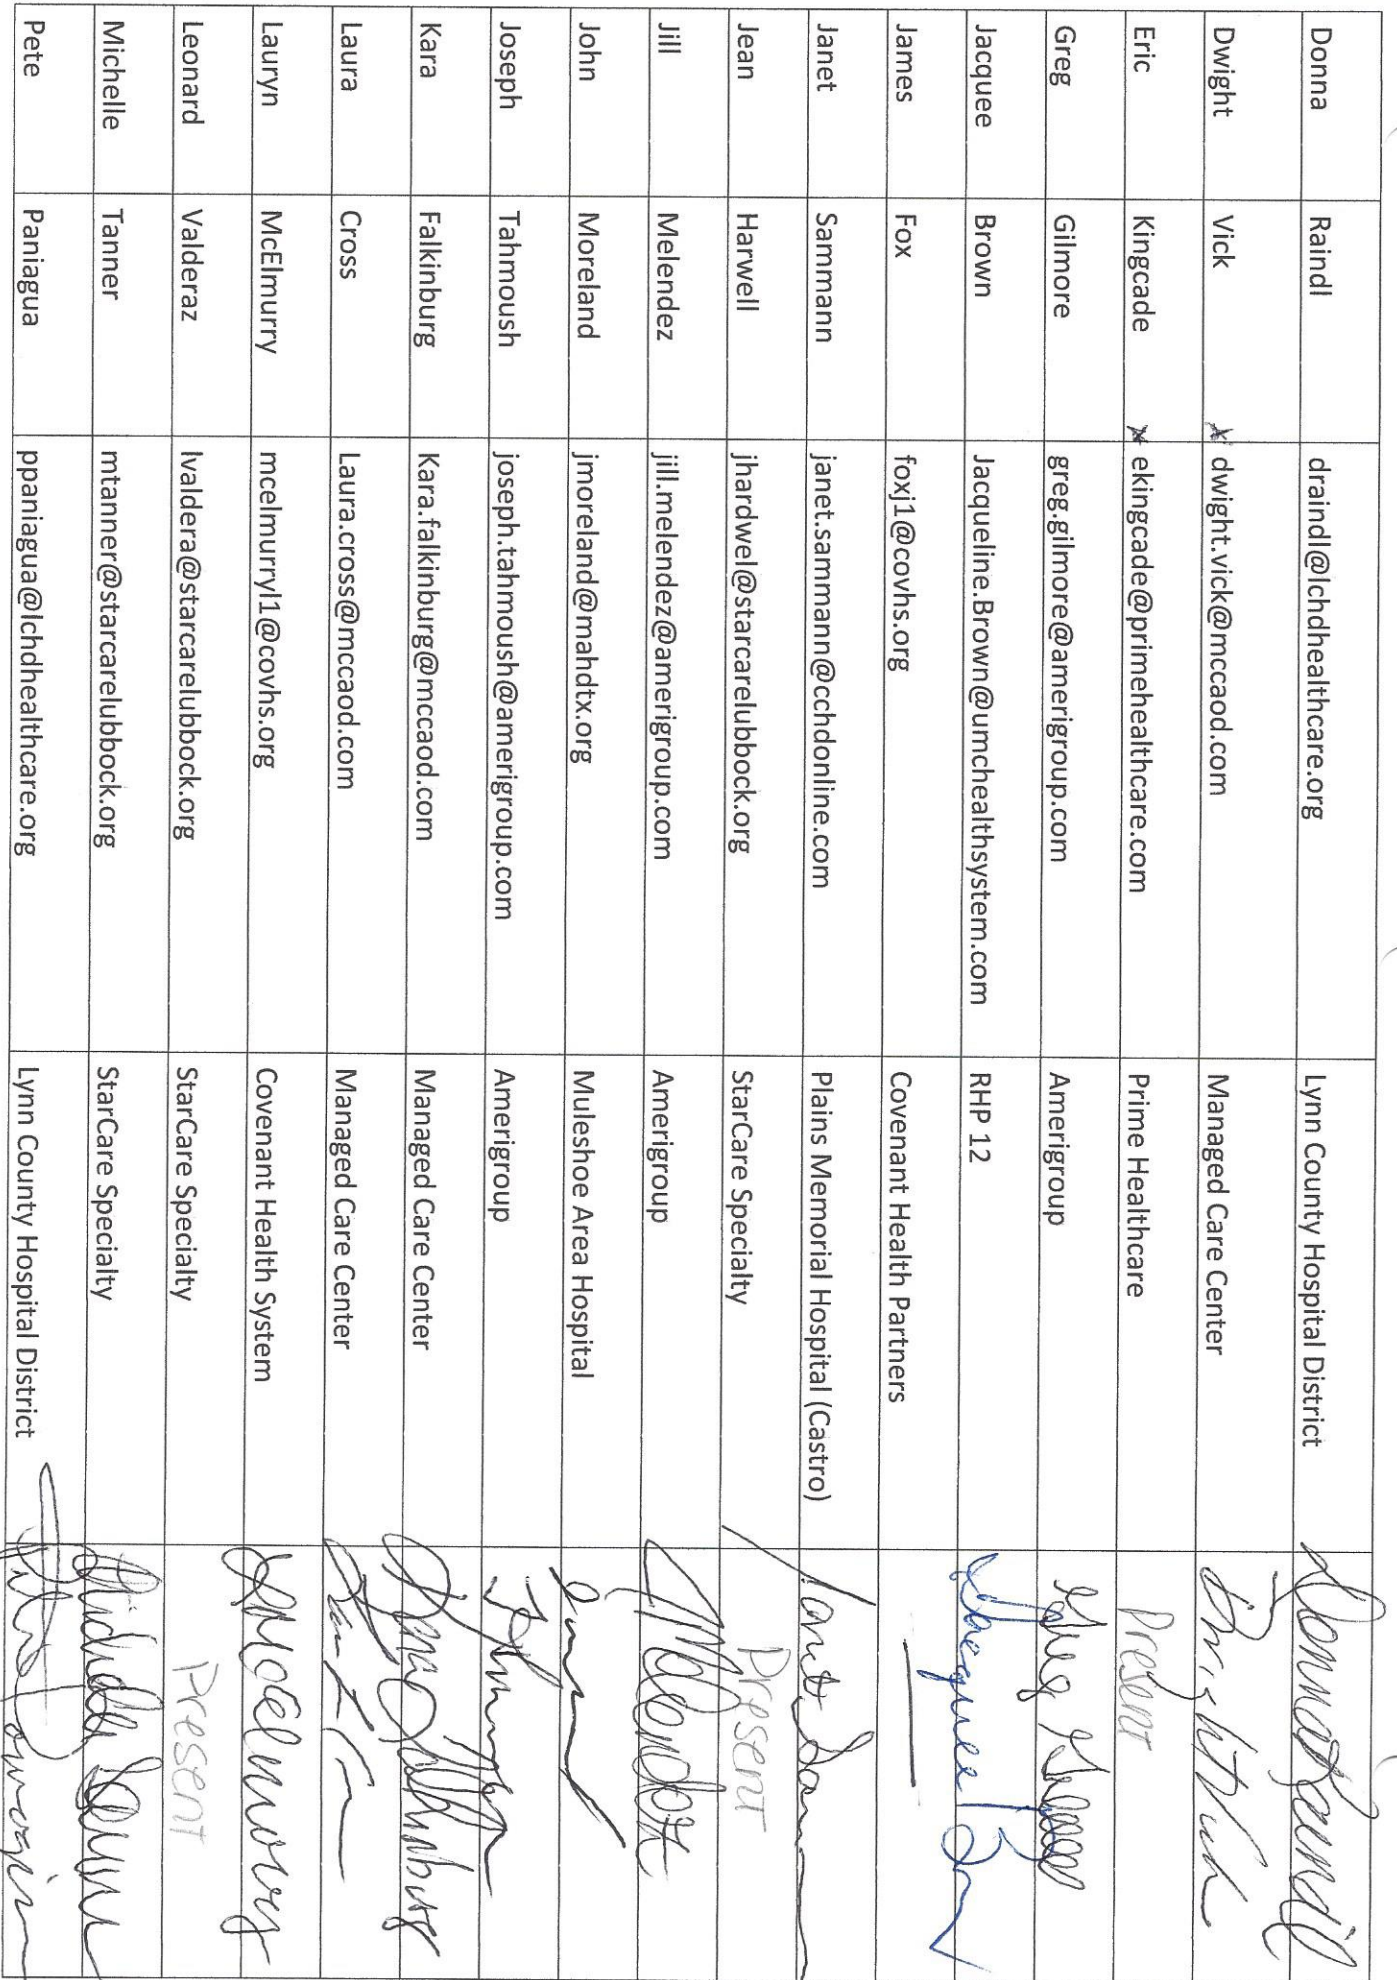 Donna Raindl draindl@lchdhealthcare.org Lynn County Hospital District
Dwight Vick * dwight.vick@mccaod.com Managed Care Center Dwight Vick
Eric Kingcade * ekingcade@primehealthcare.com Prime Healthcare Present
Greg Gilmore greg.gilmore@amerigroup.com Amerigroup Greg Gilmore
Jacquee Brown Jacqueline.Brown@umchealthsystem.com RHP 12 Jacquee Brown
James Fox foxj1@covhs.org Covenant Health Partners —
Janet Sammann janet.sammann@cchdonline.com Plains Memorial Hospital (Castro)
Jean Harwell jhardwel@starcarelubbock.org StarCare Specialty Present
Jill Melendez jill.melendez@amerigroup.com Amerigroup
John Moreland jmoreland@mahdtx.org Muleshoe Area Hospital
Joseph Tahmoush joseph.tahmoush@amerigroup.com Amerigroup
Kara Falkinburg Kara.falkinburg@mccaod.com Managed Care Center
Laura Cross Laura.cross@mccaod.com Managed Care Center
Lauryn McElmurry mcelmurryl1@covhs.org Covenant Health System
Leonard Valderaz lvaldera@starcarelubbock.org StarCare Specialty Present
Michelle Tanner mtanner@starcarelubbock.org StarCare Specialty
Pete Paniagua ppaniagua@lchdhealthcare.org Lynn County Hospital District